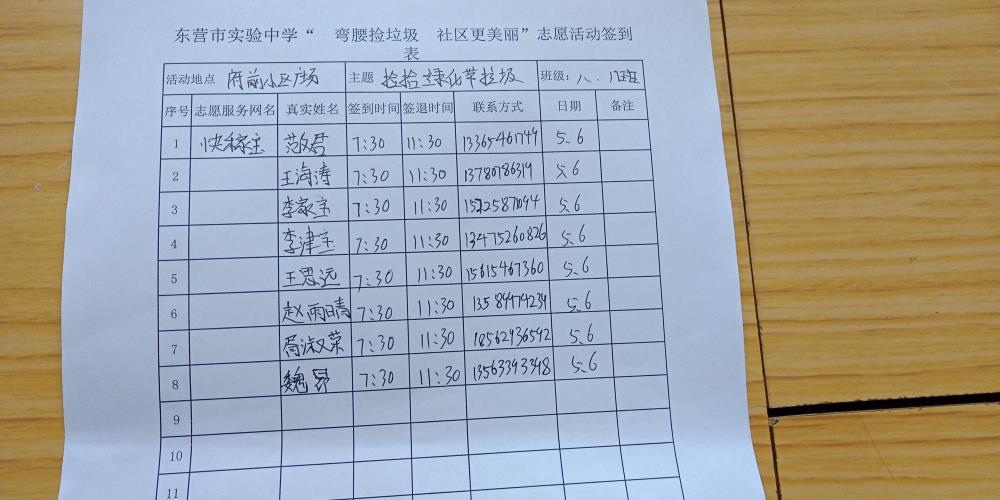 东营市实验中学“ 弯腰捡垃圾 社区更美丽”志愿活动签到
表
活动地点 府前小区广场 主题 捡拾绿化带垃圾 班级：八、
序号 志愿服务网名 真实姓名 签到时间 签退时间 联系方式 日期 备注
1 7:30 11:30 13365461749 5.6
2 王海涛 7:30 11:30 13780786319 5.6
3 李家宝 7:30 11:30 5.6
4 李津宝 7:30 11:30 13475260826 5.6
5 王思远 7:30 11:30 15615467360 5.6
6 赵雨晴 7:30 11:30 5.6
7 淑荣 7:30 11:30 18562936592 5.6
8 魏昂 7:30 11:30 13563393398 5.6
9
10
11